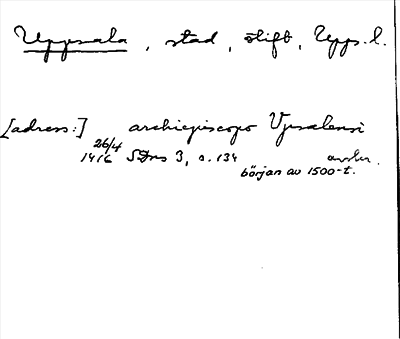 Uppsala, stad, stift, Upps. l.
[adress:] archiepiscopo Vpsalensi
26/4 1416 SDns 3, s. 134 avskr.
början av 1500-t.